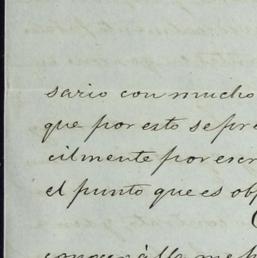 sario con mucho
que por esto se pre
cilmente por escr
el punto que es ob